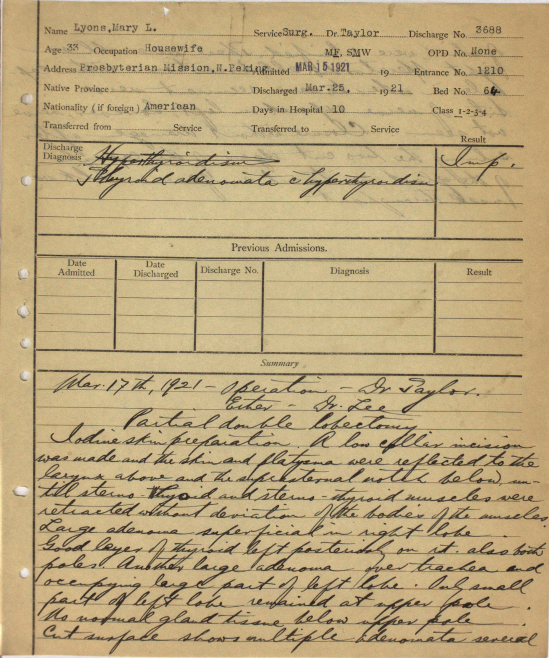 Name Lyons, Mary L. Service Surg. Dr Taylor Discharge No. 3688
Age 33 Occupation Housewife MF, SMW OPD No. None
Address Presbyterian Mission, N. Peking Admitted MAR 15 1921 19 Entrance No. 1210
Native Province Discharged Mar. 25, 1921 Bed No. 64
Nationality (if foreign) American Days in Hospital 10 Class 1-2-3-4
Transferred from Service Transferred to Service
Result
Discharge Diagnosis Hyperthyroidism Imp.
Thyroid adenomata c hyperthyroidism
Previous Admissions.
Date Admitted Date Discharged Discharge No. Diagnosis Result
Summary
Mar. 17th, 1921 - Operation - Dr Taylor.
Ether - Dr. Lee
Partial double lobectomy
Iodine skin preparation. A low collar incision
was made and the skin and platysma were reflected to the
larynx above and the suprasternal notch below, un-
till sterno-thyoid and sterno-thyroid muscles were
retracted without deviation of the bodies of the muscles
Large adenoma superficial in right lobe.
Good layer of thyroid left posteriorly on rt. also both
poles. Another large adenoma over trachea and
occupying large part of left lobe. Only small
part of left lobe remained at upper pole.
No normal gland tissue below upper pole.
Cut surface shows multiple adenomata several